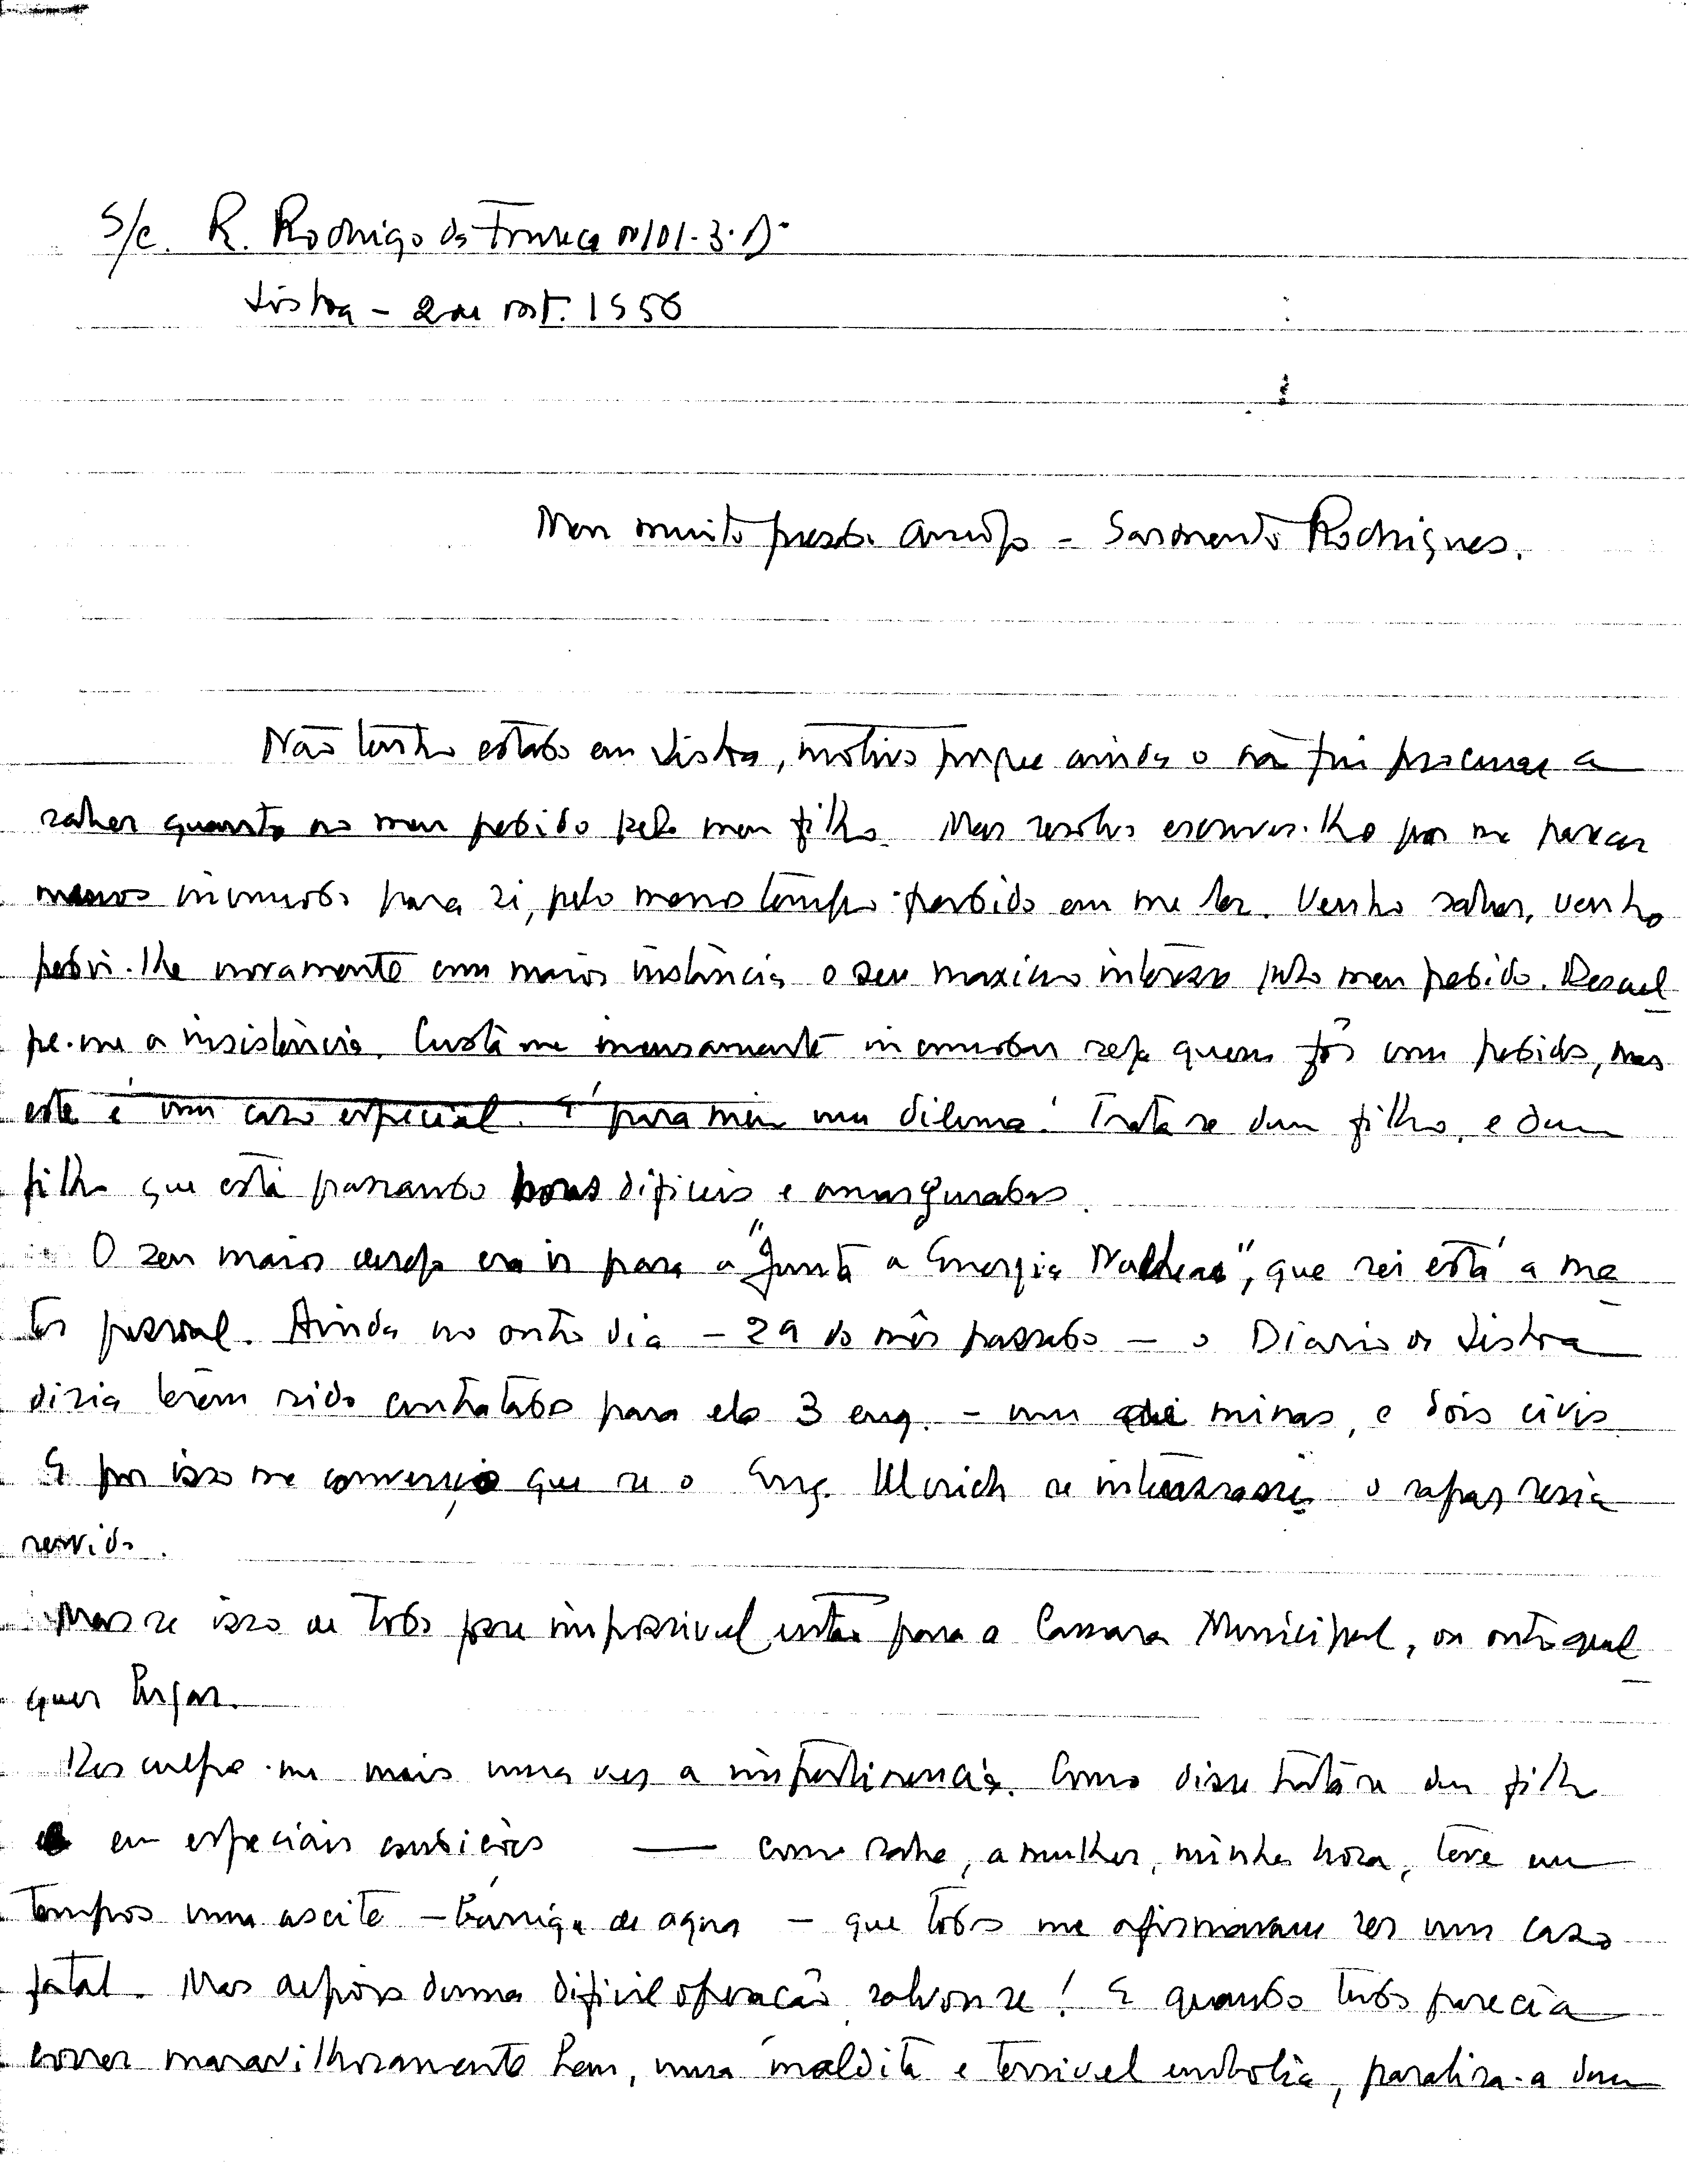 S/c. R. Rodrigo da Fonseca nº 101-3.º D.º
Lisboa - 2 de 1956
Meu muito prezado amigo - Sarmento Rodrigues.
Não tenho estado em Lisboa, motivo porque ainda o não fui procurar a
saber quanto ao meu pedido pelo meu filho. Mas resolvo escrever-lhe por me parecer
menos incomodo para si, pelo menos tempo perdido em me ler. Venho saber, venho
pedir-lhe novamente com maior instância o seu maximo interesse pelo meu pedido. Descul
pe-me a insistência. Custa-me imensamente incomodar seja quem fôr com pedidos, mas
este é um caso especial. É para mim um dilema! Trata-se dum filho, e dum
filho que está passando horas dificeis e amarguradas.
O seu maior desejo era ir para a "Junta a Energia Nuclear", que sei está a me
ter pessoal. Ainda no outro dia - 29 do mês passado - o Diario de Lisboa
dizia terem sido contratados para ela 3 eng. - um de minas, e dois civis.
E por isso me convenço que se o Eng. Ulrich se interessasse o rapaz seria
servido.
Mas se isso de todo fosse impossivel então para a Camara Municipal, ou outro qual
quer lugar.
Desculpe-me mais uma vez a impertinencia. Como disse trata-se dum filho
em especiais condições — como sabe, a mulher, minha nora, teve em
tempos uma ascite - barriga de agua - que todos me afirmavam ser um caso
fatal. Mas depois duma dificil operação, salvou-se! E quando tudo parecia
correr maravilhosamente bem, uma maldita e terrivel embolia, paralisa-a dum